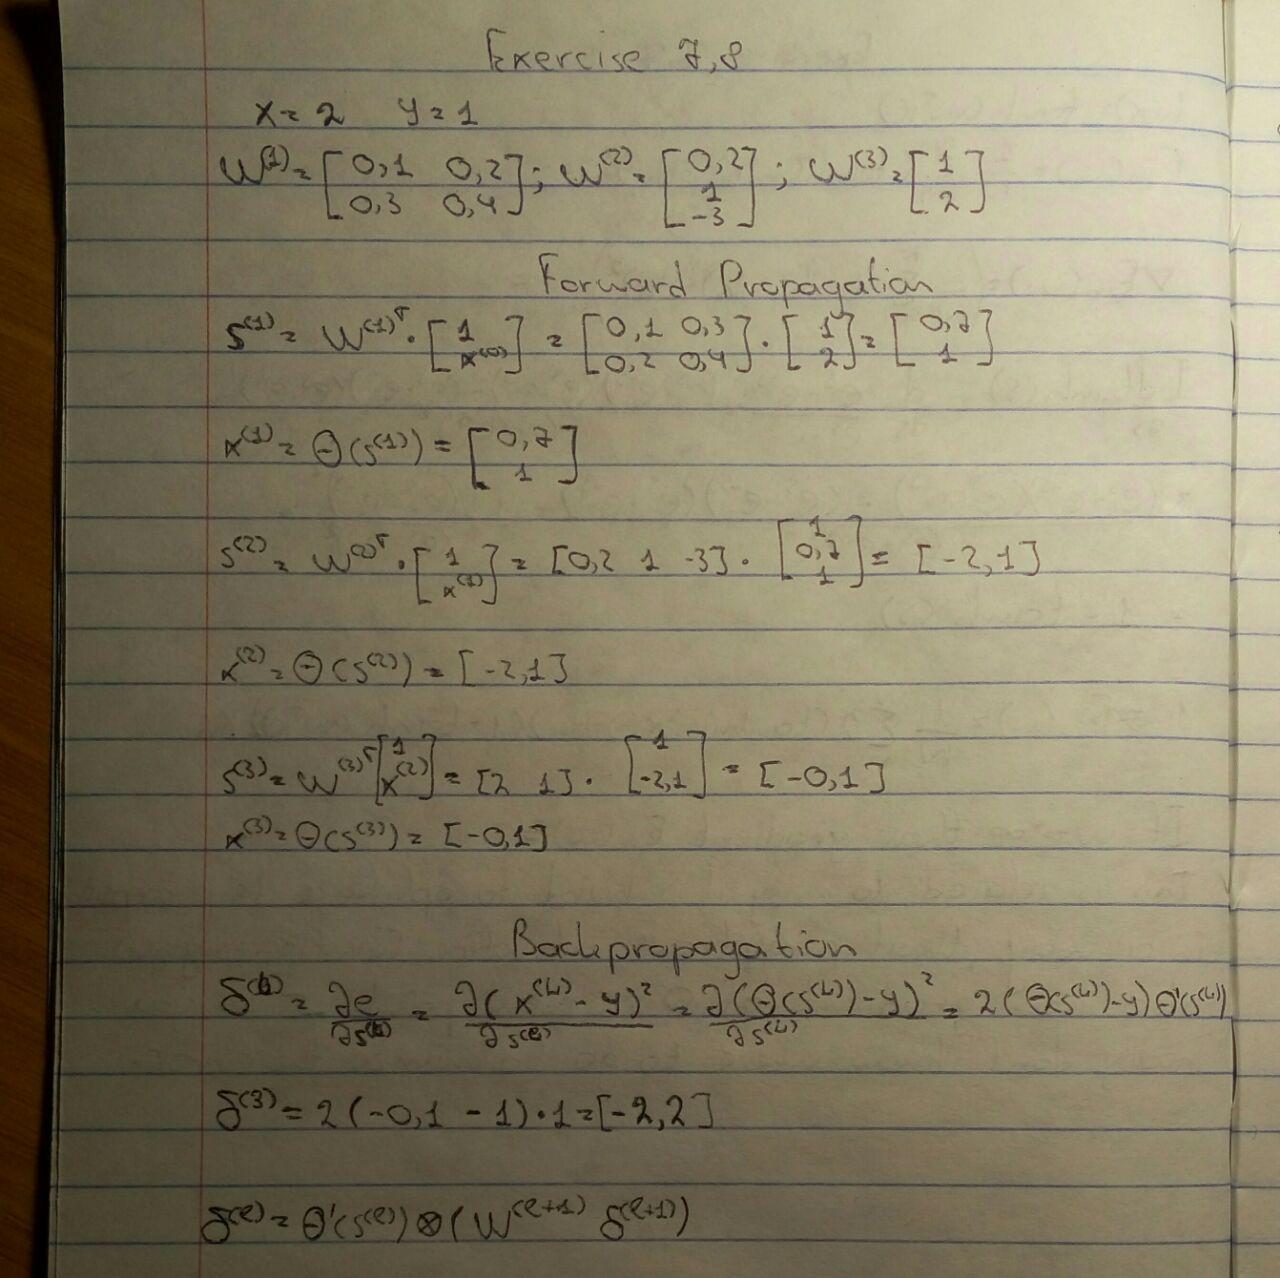 Exercise 7,8
x = 2 y = 1
W^(1) = [0,1 0,2; 0,3 0,4]; W^(2) = [0,2; 1; -3]; W^(3) = [1; 2]
Forward Propagation
s^(1) = W^(1)^T · [1; x^(0)] = [0,1 0,3; 0,2 0,4] · [1; 2] = [0,7; 1]
x^(1) = Θ(s^(1)) = [0,7; 1]
s^(2) = W^(2)^T · [1; x^(1)] = [0,2 1 -3] · [1; 0,7; 1] = [-2,1]
x^(2) = Θ(s^(2)) = [-2,1]
s^(3) = W^(3)^T [1; x^(2)] = [2 1] · [1; -2,1] = [-0,1]
x^(3) = Θ(s^(3)) = [-0,1]
Backpropagation
δ^(L) = ∂e/∂s^(L) = ∂(x^(L) - y)^2/∂s^(L) = ∂(Θ(s^(L)) - y)^2/∂s^(L) = 2(Θ(s^(L)) - y)Θ'(s^(L))
δ^(3) = 2(-0,1 - 1) · 1 = [-2,2]
δ^(ℓ) = Θ'(s^(ℓ)) ⊗ (W^(ℓ+1) δ^(ℓ+1))